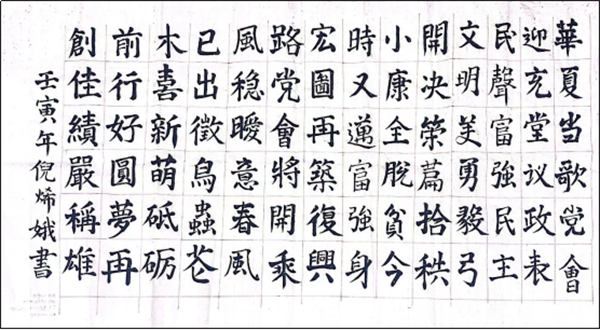 華夏当歌党會
迎充堂议政表
民聲富強民主
文明美勇毅弓
開决策篇拾秩
小康全脫貧今
時又邁富強身
宏圖再築復興
路党會將開乘
風稳暖意春風
已出徵鳥蟲芲
木喜新萌砥砺
前行好圓夢再
創佳績嚴稱雄
壬寅年倪烯娥書